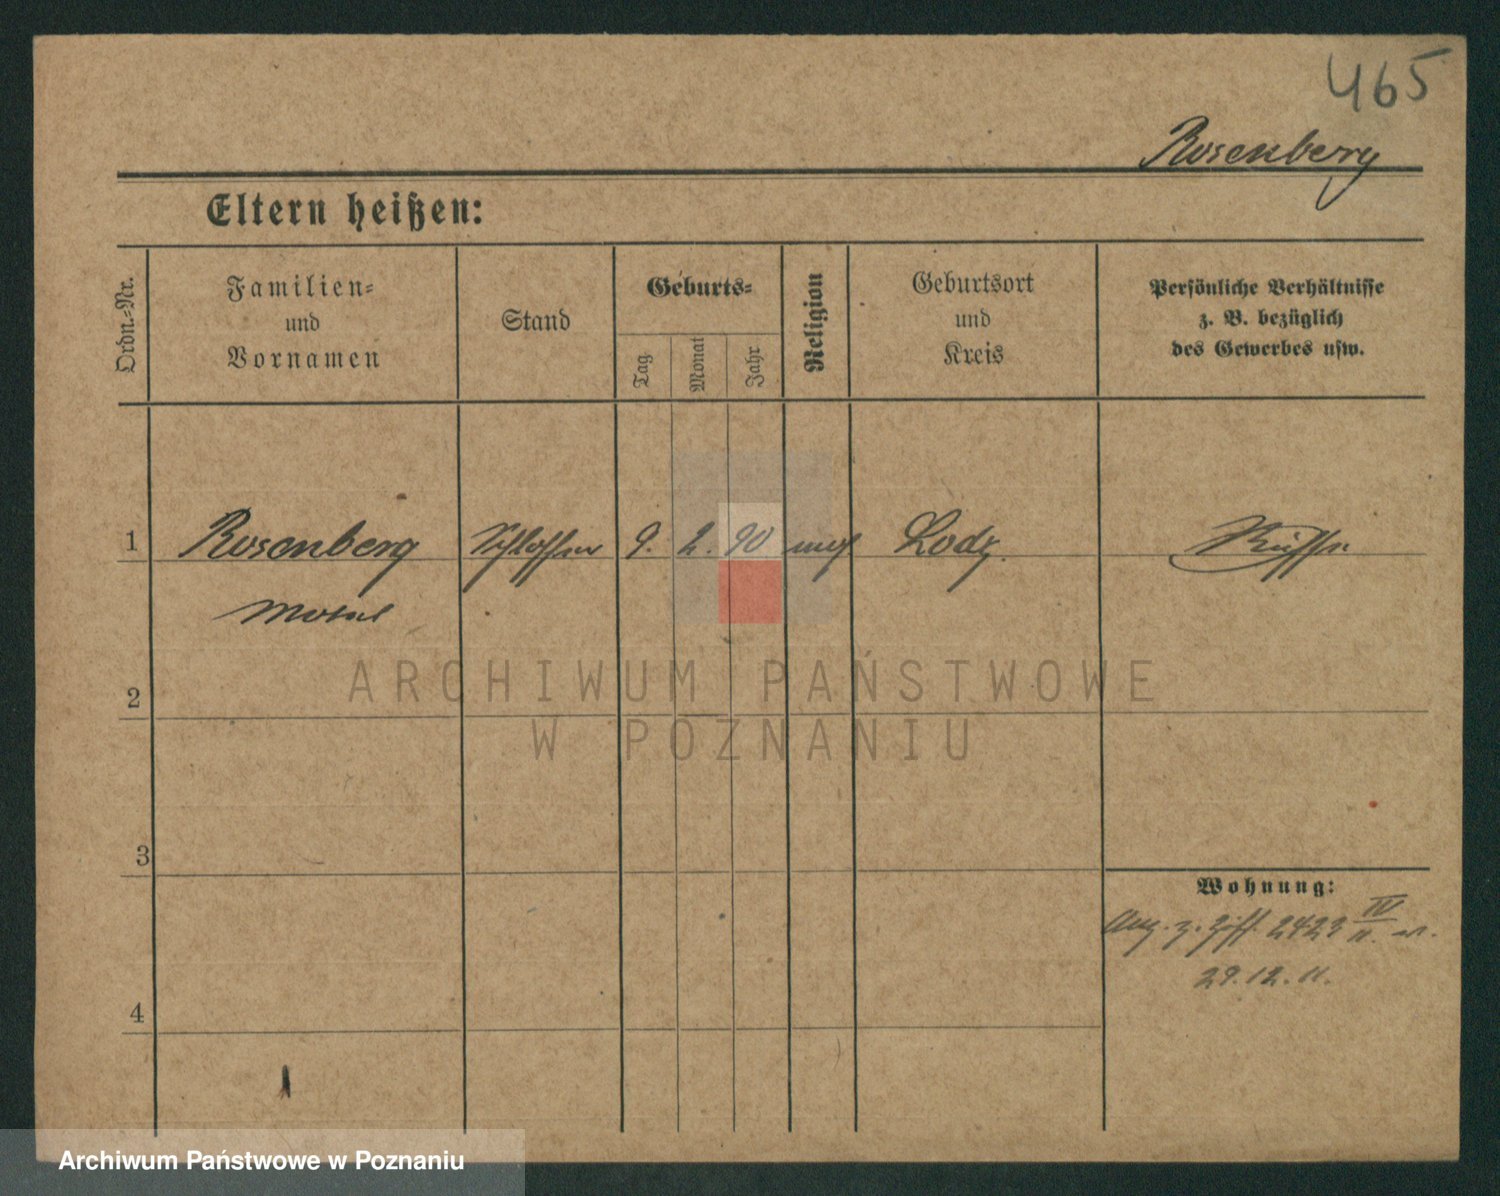 465
Rosenberg
Eltern heißen:
Ordn.-Nr.
Familien-
und
Vornamen
Stand
Geburts-
Tag
Monat
Jahr
Religion
Geburtsort
und
Kreis
Persönliche Verhältnisse
z. B. bezüglich
des Gewerbes usw.
1 Rosenberg Schlosser 9. 2. 90 mos Lodz. Russe
Motel
2
ARCHIWUM PAŃSTWOWE
W POZNANIU
3
Wohnung:
2423 IV
29.12.11.
4
Archiwum Państwowe w Poznaniu